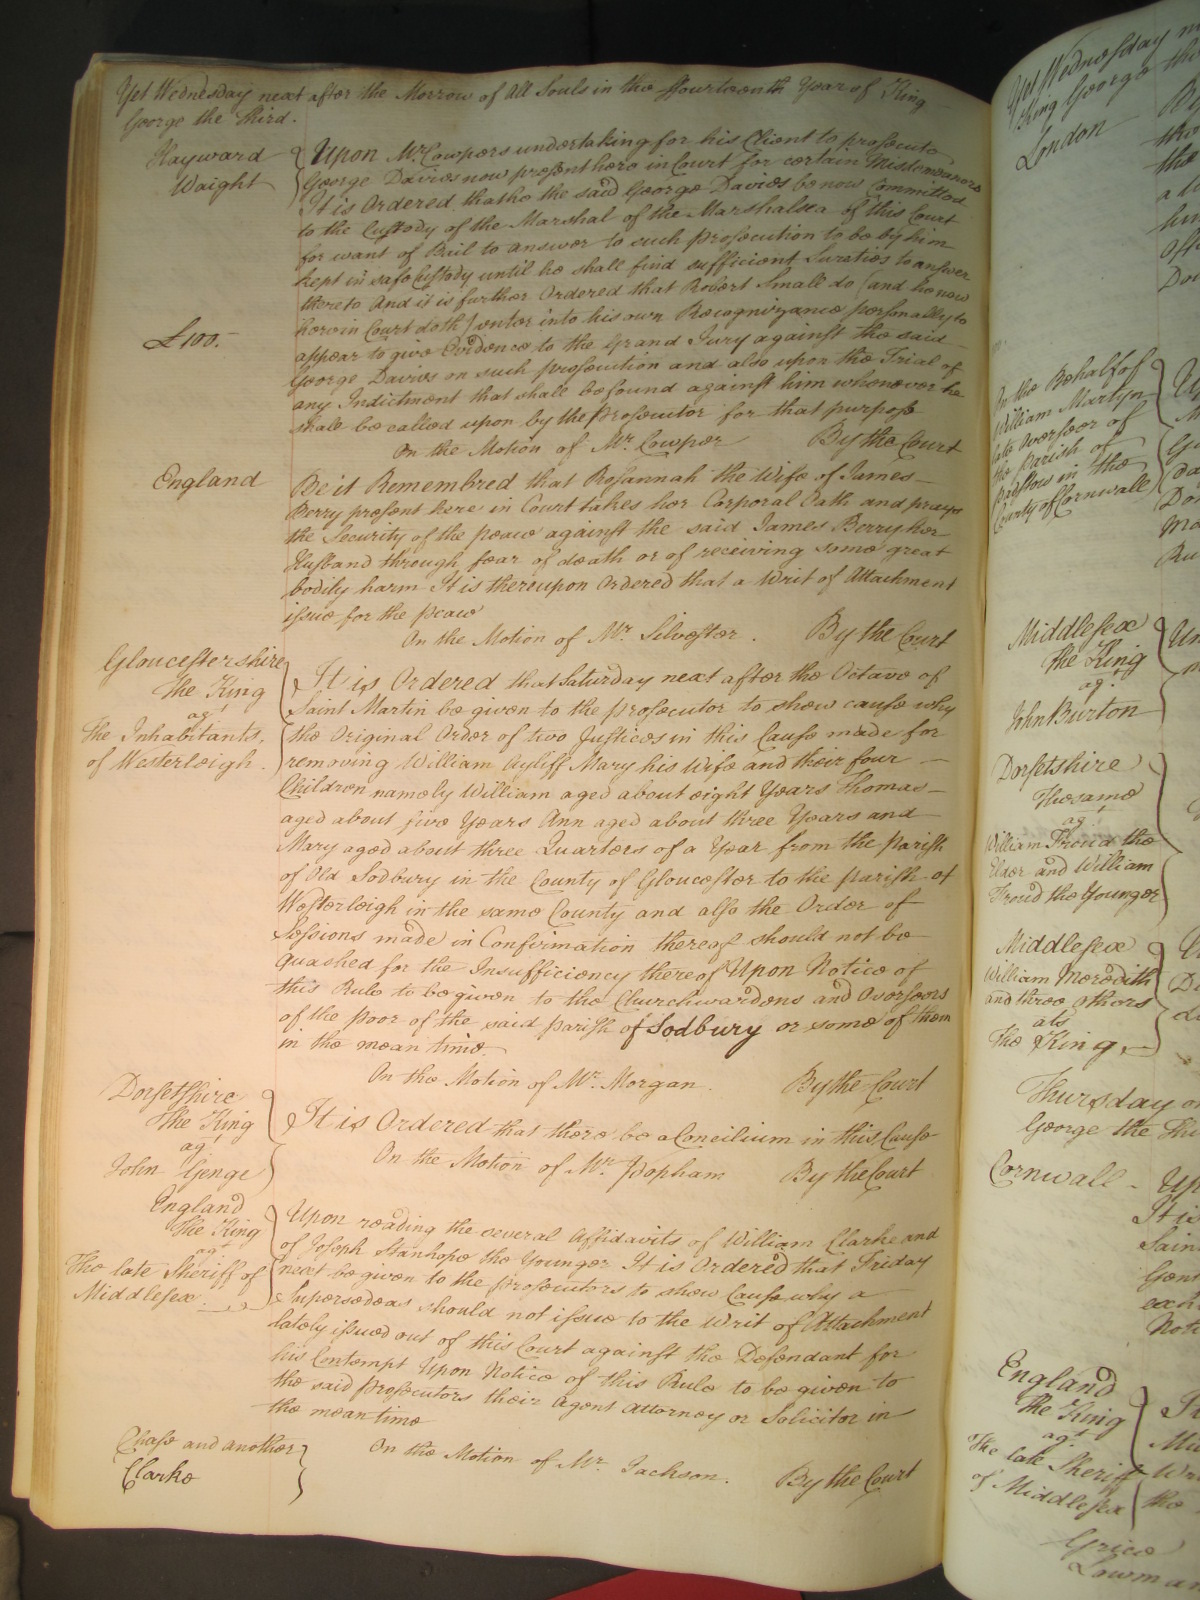 Yet Wednesday next after the Morrow of All Souls in the ffourteenth Year of King
George the Third.
Hayward
Waight
Upon Mr. Cowpers undertaking for his Client to prosecute
George Davies now present here in Court for certain Misdemeanors
It is Ordered that he the said George Davies be now Committed
to the Custody of the Marshal of the Marshalsea of this Court
for want of Bail to answer to such prosecution to be by him
kept in safe Custody until he shall find sufficient Sureties to answer
thereto And it is further Ordered that Robert Smalle do (and he now
here in Court doth) enter into his own Recognizance personally to
£100.
appear to give Evidence to the Grand Jury against the said
George Davies on such prosecution and also upon the Trial of
any Indictment that shall be found against him whenever he
shall be called upon by the Prosecutor for that purpose
On the Motion of Mr. Cowper By the Court
England
Be it Remembred that Rosannah the Wife of James
Berry present here in Court takes her Corporal Oath and prays
the Security of the peace against the said James Berry her
Husband through fear of death or of receiving some great
bodily harm It is thereupon Ordered that a Writ of Attachment
issue for the peace
On the Motion of Mr. Silvester. By the Court
Gloucestershire
The King
agt.
The Inhabitants
of Westerleigh.
It is Ordered that Saturday next after the Octave of
Saint Martin be given to the prosecutor to shew cause why
the Original Order of two Justices in this Cause made for
removing William Ayliff Mary his Wife and their four
Children namely William aged about eight Years Thomas
aged about five Years Ann aged about three Years and
Mary aged about three Quarters of a Year from the parish
of Old Sodbury in the County of Gloucester to the parish of
Westerleigh in the same County and also the Order of
Sessions made in Confirmation thereof should not be
quashed for the Insufficiency thereof Upon Notice of
this Rule to be given to the Churchwardens and Overseers
of the poor of the said parish of Sodbury or some of them
in the mean time.
On the Motion of Mr. Morgan. By the Court
Dorsetshire
The King
agt.
John Genge
It is Ordered that there be a Concilium in this Cause
On the Motion of Mr. Popham By the Court
England
The King
agt.
The late Sheriff of
Middlesex.
Upon reading the several Affidavits of William Clarke and
of Joseph Stanhope the Younger It is Ordered that Friday
next be given to the prosecutors to shew Cause why a
Supersedeas should not issue to the Writ of Attachment
lately issued out of this Court against the Defendant for
his Contempt Upon Notice of this Rule to be given to
the said prosecutors their Agent Attorney or Solicitor in
the mean time
Chase and another
Clarke
On the Motion of Mr. Jackson. By the Court
Yet Wednesday
King George the
London
On the Behalf of
William Martyn
late Overseer of
the Parish of
in the
County of Cornwall
Middlesex
The King
agt.
John Burton
Dorsetshire
The same
agt.
William Froud the
Elder and William
Froud the Younger
Middlesex
William Meredith
and three others
ats
The King
Thursday
George the
Cornwall
England
The King
agt.
The late Sheriff
of Middlesex
Grice